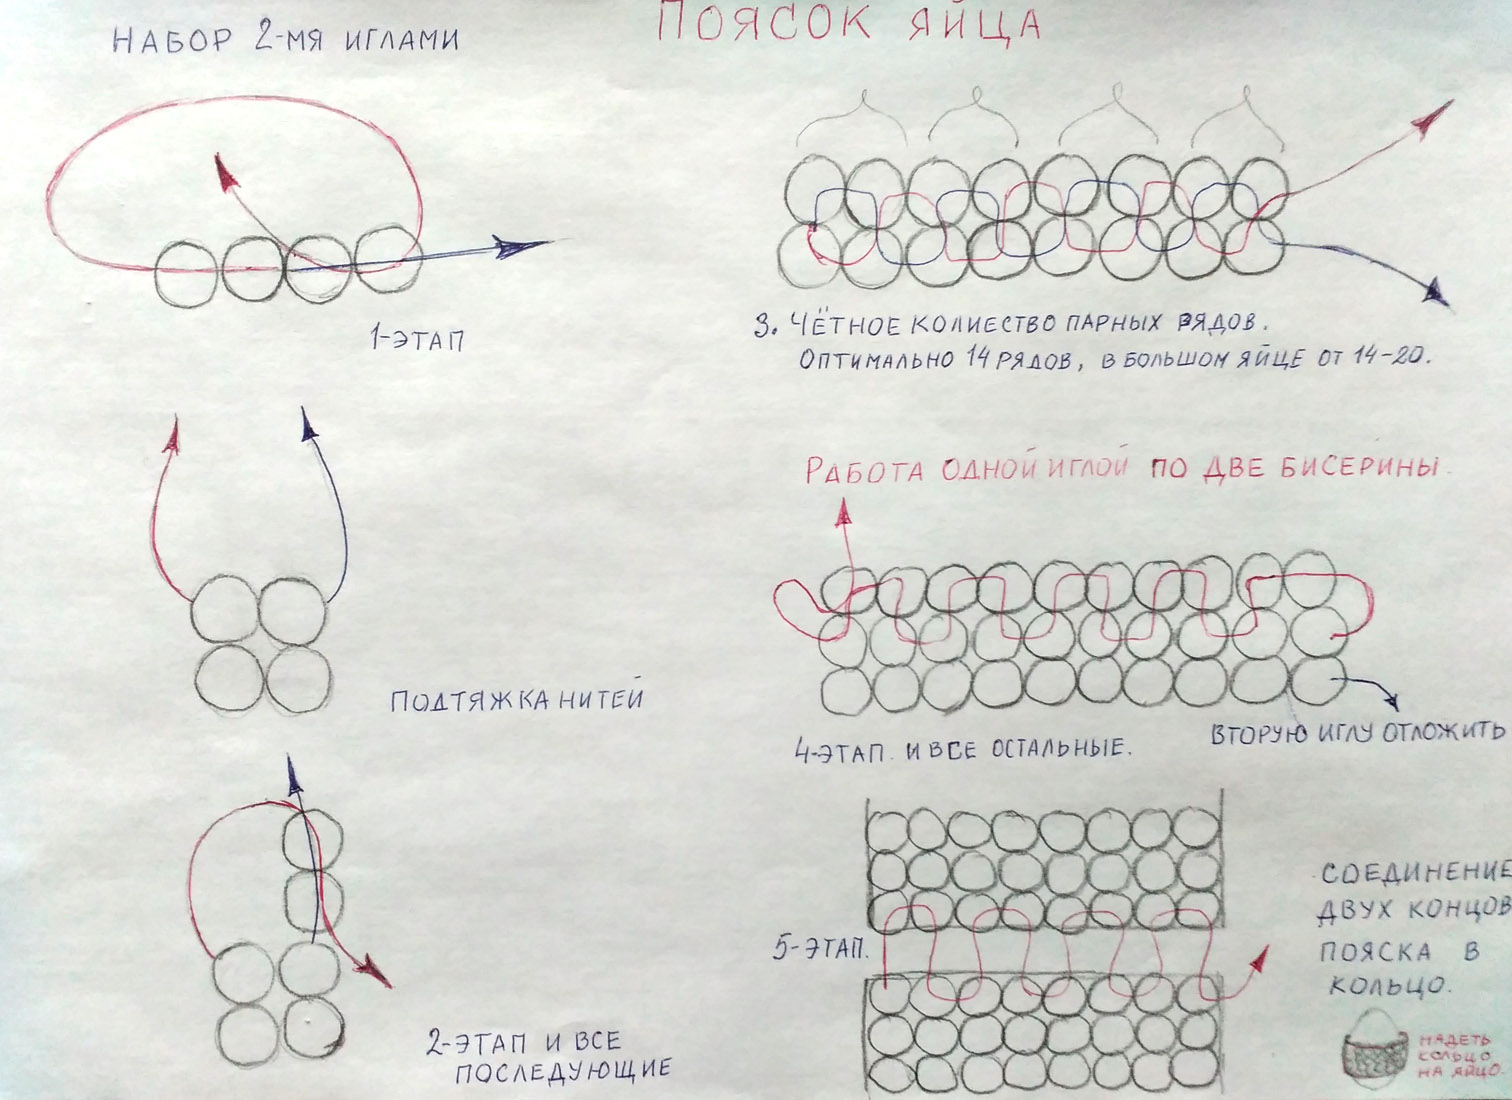 НАБОР 2-МЯ ИГЛАМИ
ПОЯСОК ЯЙЦА
1-ЭТАП
3. ЧЁТНОЕ КОЛИЕСТВО ПАРНЫХ РЯДОВ.
ОПТИМАЛЬНО 14 РЯДОВ, В БОЛЬШОМ ЯЙЦЕ ОТ 14-20.
ПОДТЯЖКА НИТЕЙ
РАБОТА ОДНОЙ ИГЛОЙ ПО ДВЕ БИСЕРИНЫ.
ВТОРУЮ ИГЛУ ОТЛОЖИТЬ
4-ЭТАП. И ВСЕ ОСТАЛЬНЫЕ.
2-ЭТАП И ВСЕ
ПОСЛЕДУЮЩИЕ
5-ЭТАП.
СОЕДИНЕНИЕ
ДВУХ КОНЦОВ
ПОЯСКА В
КОЛЬЦО.
НАДЕТЬ
КОЛЬЦО
НА ЯЙЦО.